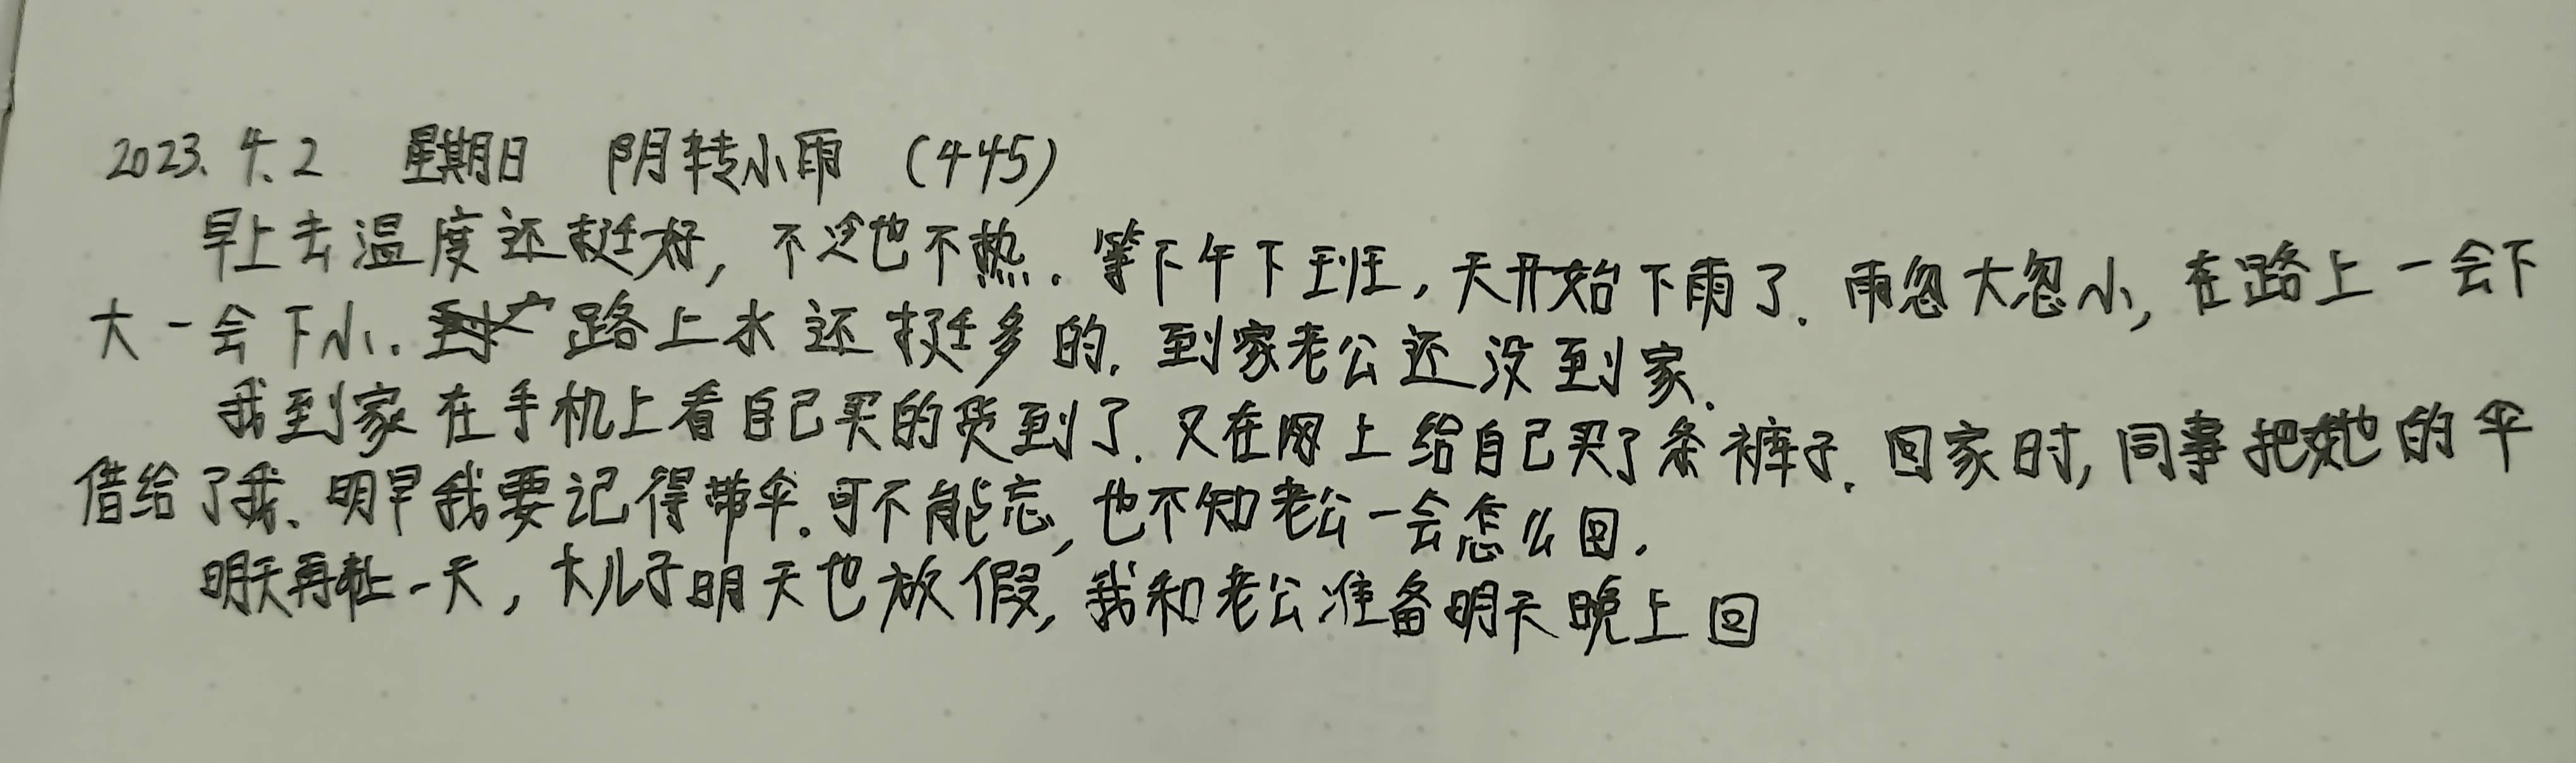 2023.4.2 星期日 阴转小雨 (445)
早上去温度还挺好，不冷也不热.等下午下班，天开始下雨了.雨忽大忽小，在路上一会下
大一会下小.路上水还挺多的.到家老公还没到家.
我到家在手机上看自己买的货到了.又在网上给自己买了条裤子.回家时，同事把她的伞
借给了我、明早我要记得带伞.可不能忘，也不知老公一会怎么回.
明天再一天，大儿子明天也放假，我和老公准备明天晚上回